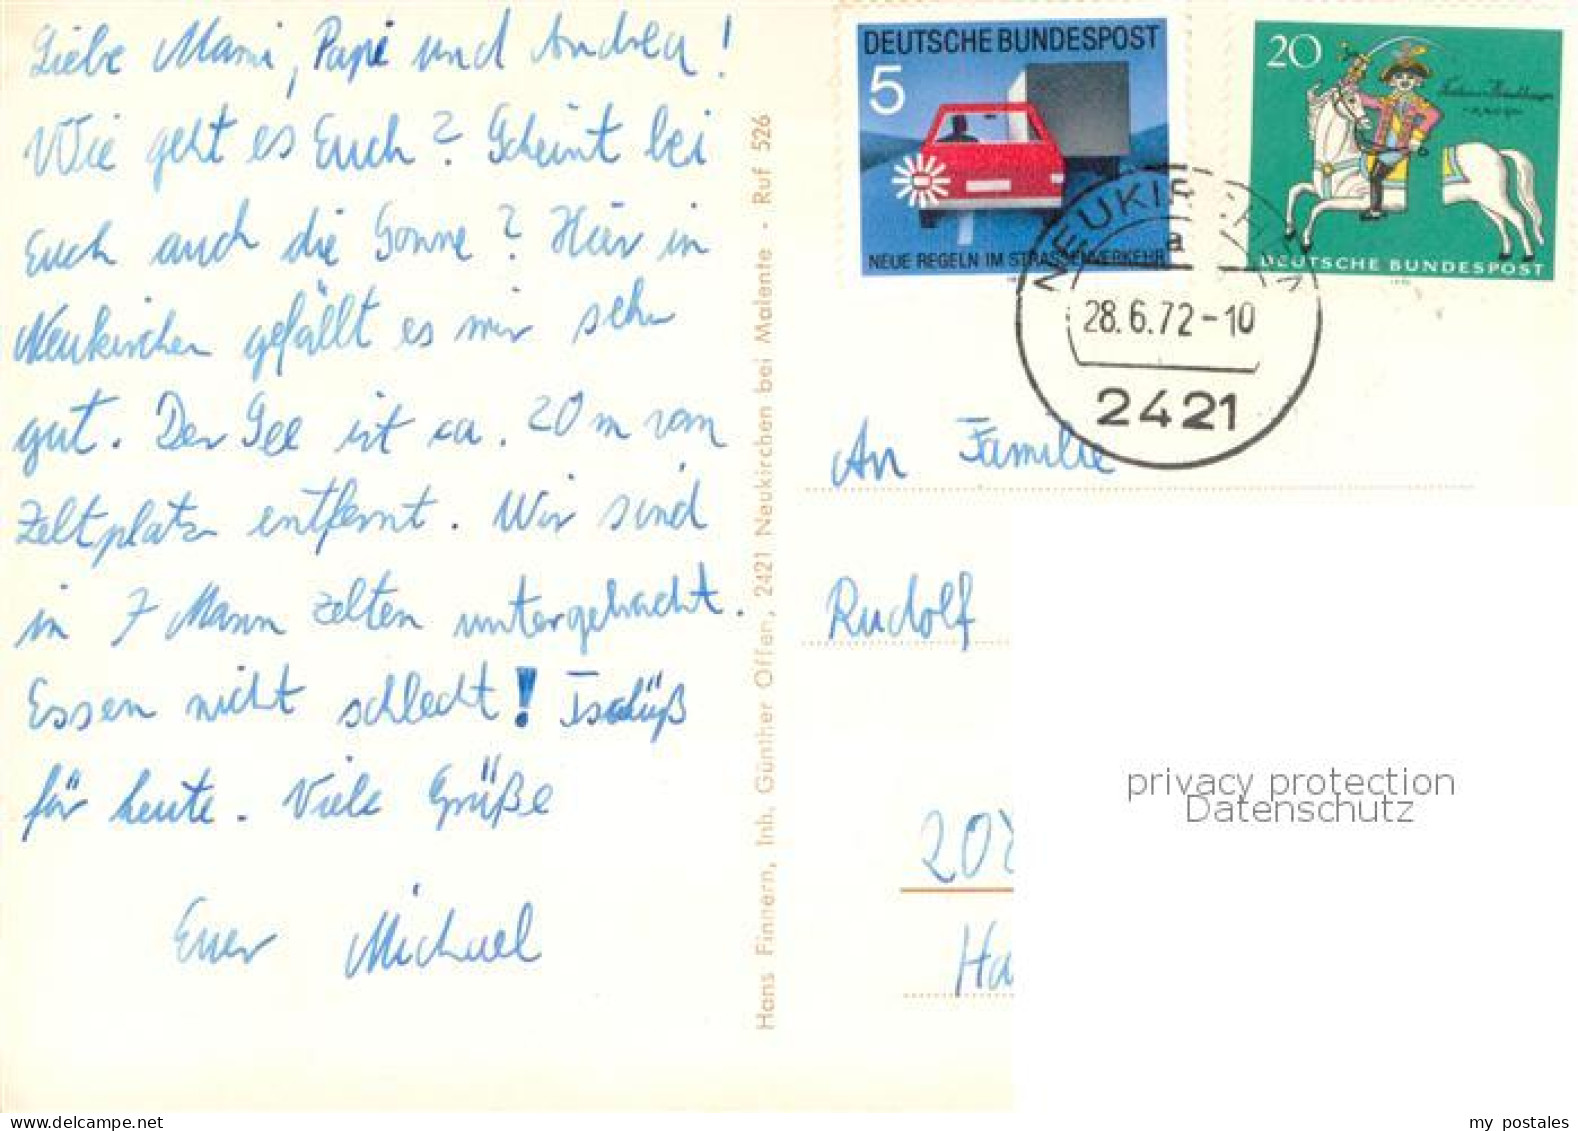 Liebe Mami, Papi und Andrea!
Wie geht es Euch? Scheint bei
Euch auch die Sonne? Hier in
Neukirchen gefällt es mir sehr
gut. Der See ist ca. 20 m vom
Zeltplatz entfernt. Wir sind
in 7 Mann Zelten untergebracht.
Essen nicht schlecht! Tschüß
für heute. Viele Grüße
Euer Michael
Hans Finnern, Inh. Günther Offen, 2421 Neukirchen bei Malente · Ruf 526
DEUTSCHE BUNDESPOST
5
NEUE REGELN IM STRASSENVERKEHR
20
DEUTSCHE BUNDESPOST
a
28.6.72-10
2421
An Familie
Rudolf
Ha
privacy protection
Datenschutz
my postales